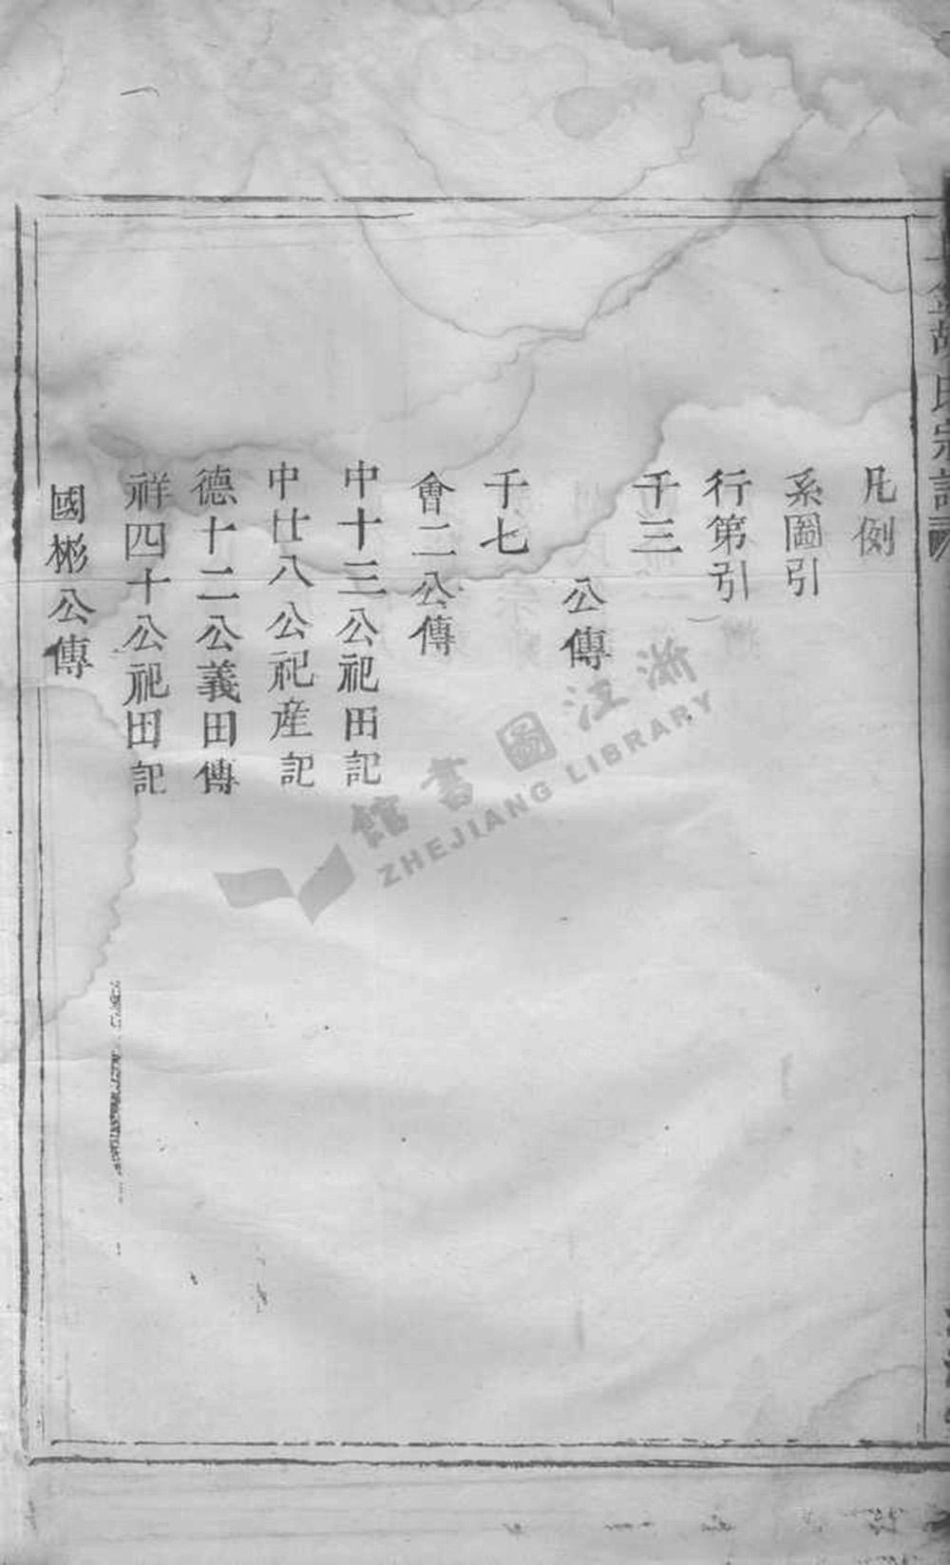 凡例
系圖引
行第引
千三
公傳
千七
會二公傳
中十三公祀田記
中廿八公祀産記
德十二公義田傳
祥四十公祀田記
國彬公傳
胡氏宗譜
浙江圖書館
ZHEJIANG LIBRARY